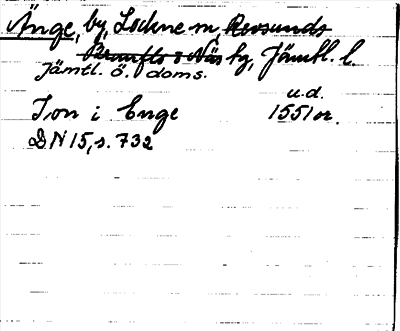 Änge, by, Lockne sn, Revsunds
Brunflo o Näs tg, Jämtl. l.
Jämtl. ö. doms.
u.d.
Jon i Enge 1551 or.
DN 15, s. 732